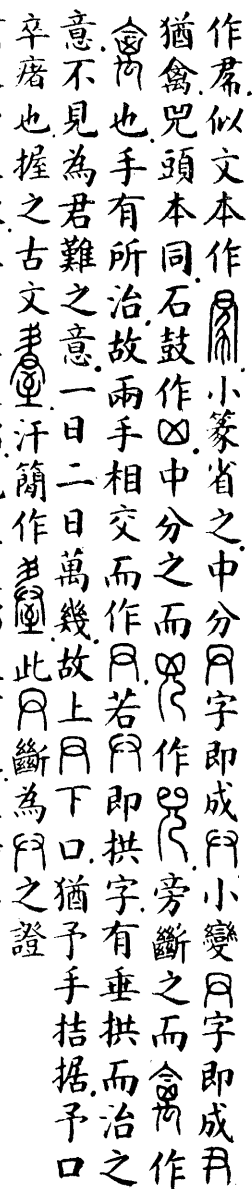 作似文本作小篆省之中分字即成小變字即成尹
猶禽兕頭本同石鼓作中分之而作旁斷之而作
也手有所治故兩手相交而作若即拱字有垂拱而治之
意不見為君難之意一日二日萬幾故上下口猶予手拮据予口
卒瘏也握之古文汗簡作此斷為之證